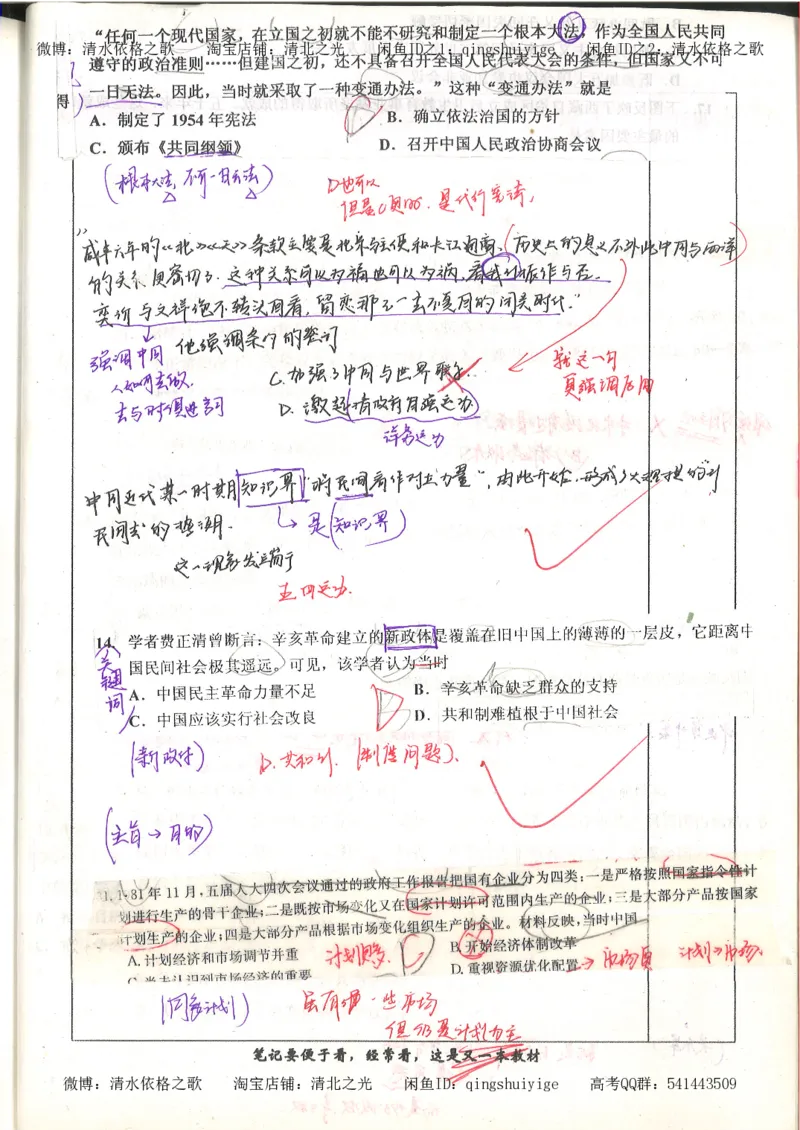 “任何一个现代国家，在立国之初就不能不研究和制定一个根本大法，作为全国人民共同
微博：清水依格之歌 淘宝店铺：清北之光 闲鱼ID之1：qingshuiyige 闲鱼ID之2：清水依格之歌
遵守的政治准则……但建国之初，还不具备召开全国人民代表大会的条件，但国家又不可
一日无法。因此，当时就采取了一种变通办法。”这种“变通办法”就是
得
A．制定了 1954 年宪法 B．确立依法治国的方针
C．颁布《共同纲领》 D．召开中国人民政治协商会议
(根本大法，不可一日无法)
D也可以
但是C更好，是代行宪法，
咸丰六年的《北》《天》条款主要是北京与主使和长江通商，(历史上的意义不外此中国与西洋
的关系更密切了。这种关系可以为福也可以为祸，看我们振作与否。
奕䜣与文祥绝不转头回看，留恋那已一去不复回的闭关时代。”
他强调条约的签订
强调中国
人如何去做，
去与时俱进
C.加强了中国与世界联系
D.激起清政府自强运动
就这一句
更强调后用
洋务运动
中国近代某一时期知识界“将民间看作对立力量”，由此开始，形成了大规模的“到
民间去”的热潮．
是(知识界)
这一现象发端于
五四运动．
14、学者费正清曾断言：辛亥革命建立的新政体是覆盖在旧中国上的薄薄的一层皮，它距离中
国民间社会极其遥远。可见，该学者认为当时
关键词
A．中国民主革命力量不足 B．辛亥革命缺乏群众的支持
C．中国应该实行社会改良 D．共和制难植根于中国社会
(新政体) D.共和制．(制度问题)．
(主旨→目的)
81 年 11 月，五届人大四次会议通过的政府工作报告把国有企业分为四类：一是严格按照国家指令性计
划进行生产的骨干企业；二是既按市场变化又在国家计划许可范围内生产的企业；三是大部分产品按国家
计划生产的企业；四是大部分产品根据市场变化组织生产的企业。材料反映，当时中国
A. 计划经济和市场调节并重 计划更多． B. 开始经济体制改革
C. 尚未认识到市场经济的重要 D. 重视资源优化配置→市场更 计划>市场．
(国家计划) 虽有增一些市场
但仍是计划为主
笔记要便于看，经常看，这是又一本教材
微博：清水依格之歌 淘宝店铺：清北之光 闲鱼ID：qingshuiyige 高考QQ群：541443509